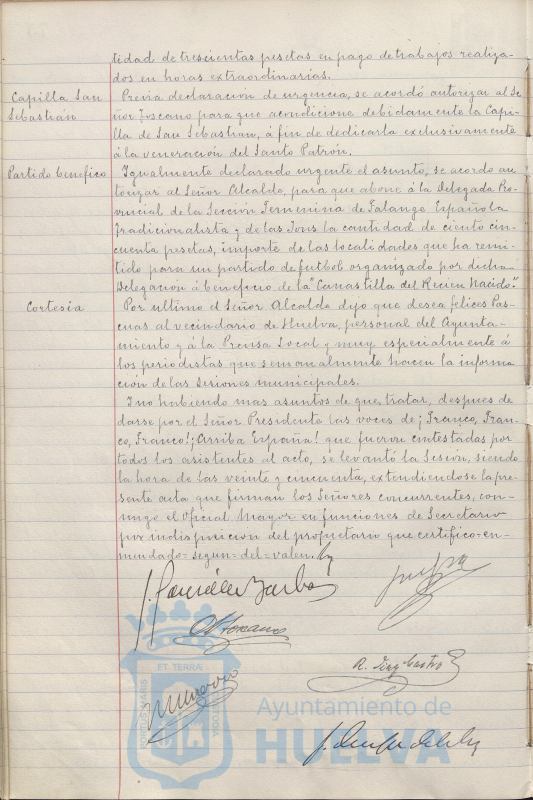 tidad de trescientas pesetas en pago de trabajos realiza-
dos en horas extraordinarias.
Capilla San
Sebastián
Previa declaración de urgencia, se acordó autorizar al Se
ñor Toscano para que acondicione debidamente la Capi-
lla de San Sebastian, á fin de dedicarla exclusivamente
á la veneración del Santo Patrón.
Partido benefico
Igualmente declarado urgente el asunto, se acordo au-
torizar al Señor Alcalde, para que abone á la Delegada Pro-
vincial de la Sección Femenina de Falange Española
Tradicionalista y de las Jons la cantidad de ciento cin-
cuenta pesetas, importe de las localidades que ha remi-
tido para un partido de futbol organizado por dicha
Delegación á beneficio de la "Canastilla del Recien Nacido".
Cortesia
Por ultimo el Señor Alcalde dijo que desea felices Pas-
cuas al vecindario de Huelva, personal del Ayunta-
miento y á la Prensa Local y muy especialmente á
los periodistas que semanalmente hacen la informa
ción de las Sesiones municipales.
Y no habiendo mas asuntos de que tratar, despues de
darse por el Señor Presidente las voces de ¡Franco, Fran-
co, Franco! ¡Arriba España! que fueron contestadas por
todos los asistentes al acto, se levantó la Sesión, siendo
la hora de las veinte y cincuenta, extendiendose la pre-
sente acta que firman los Señores concurrentes, con-
migo el Oficial Mayor en funciones de Secretario
por indisposición del propietario que certifico=en-
mendado=segun=del=valen.
A. Toscano
R. Diaz Castro
PORTUS MARIS
ET TERRÆ
CUSTODIA
Ayuntamiento de
HUELVA